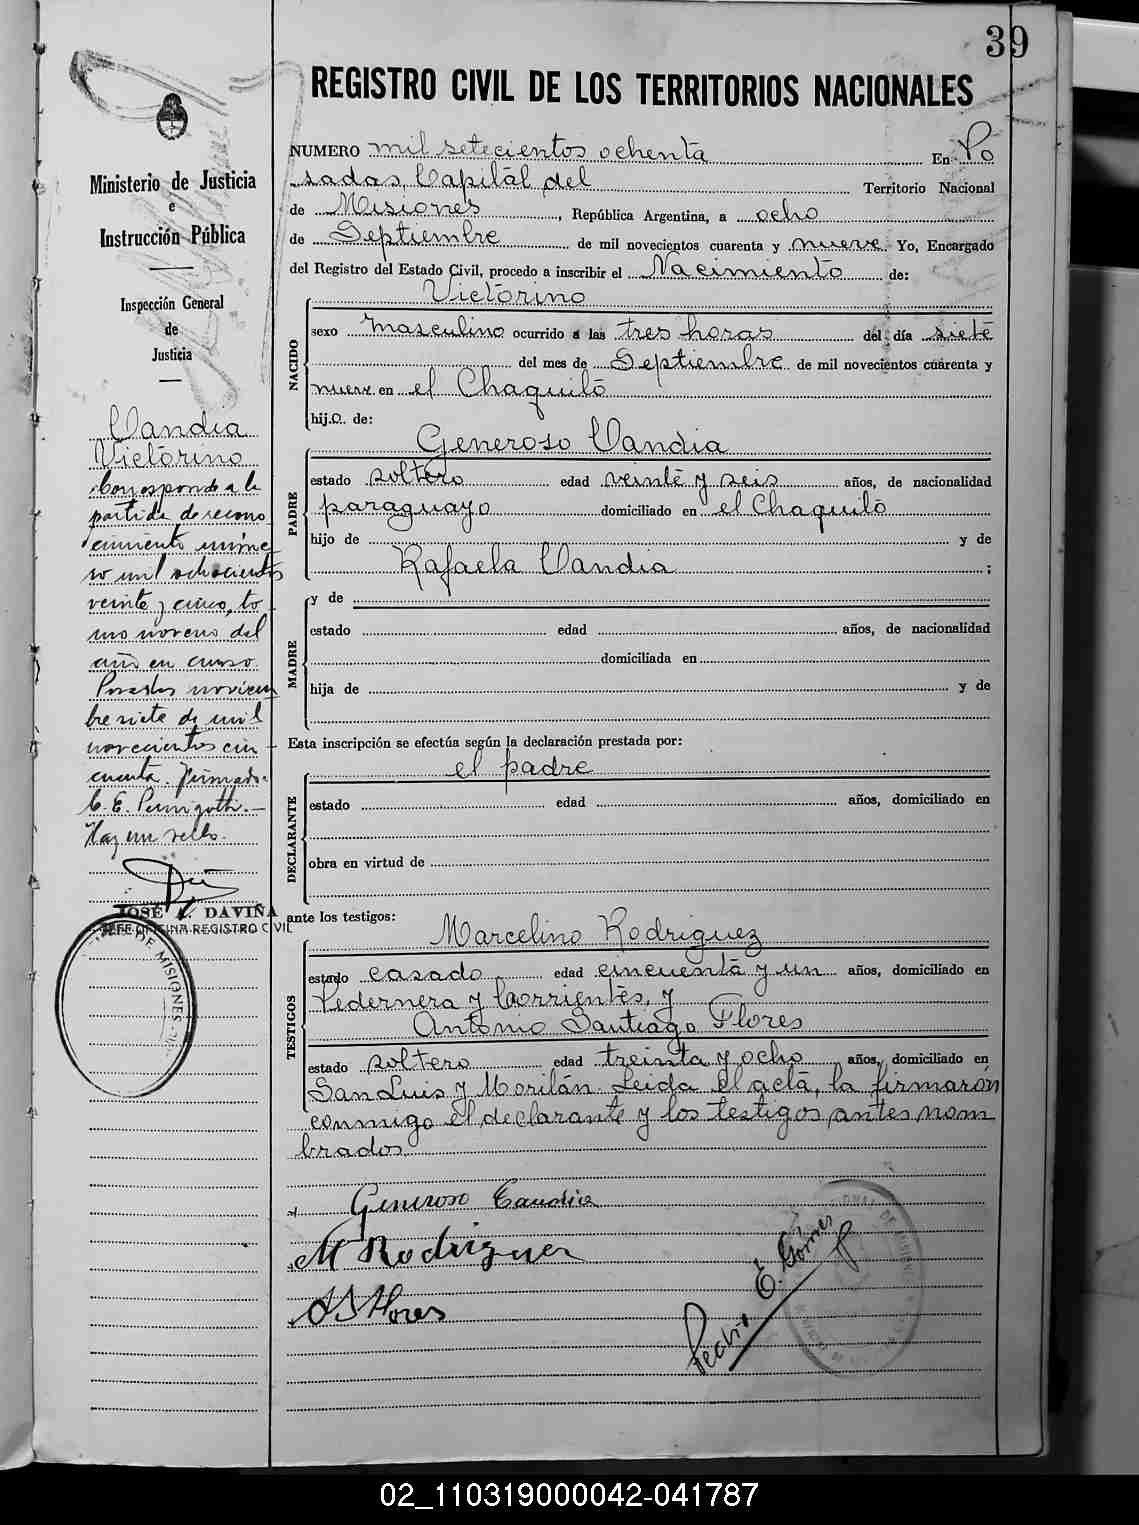 39
REGISTRO CIVIL DE LOS TERRITORIOS NACIONALES
Ministerio de Justicia
e
Instrucción Pública
Inspección General
de
Justicia
Candia
Victorino
Corresponde a la
partida de recono
cimiento núme
ro mil ochocientos
veinte y cinco, to
mo noveno del
año en curso.
Posadas noviem
bre siete de mil
novecientos cin
cuenta. Firmado.
C. E.
Hay un sello.
JOSÉ A. DAVIÑA
JEFE OFICINA REGISTRO CIVIL
DE MISIONES
NUMERO mil setecientos ochenta En Po
sadas, Capital del Territorio Nacional
de Misiones, República Argentina, a ocho
de Septiembre de mil novecientos cuarenta y nueve Yo, Encargado
del Registro del Estado Civil, procedo a inscribir el Nacimiento de:
NACIDO
Victorino
sexo masculino ocurrido a las tres horas del día siete
del mes de Septiembre de mil novecientos cuarenta y
nueve en el Chaquito
hij.o. de:
PADRE
Generoso Candia
estado soltero edad veinte y seis años, de nacionalidad
paraguayo domiciliado en el Chaquito
hijo de y de
Rafaela Candia ;
MADRE
y de
estado edad años, de nacionalidad
domiciliada en
hija de y de
Esta inscripción se efectúa según la declaración prestada por:
el padre
DECLARANTE
estado edad años, domiciliado en
obra en virtud de
ante los testigos:
TESTIGOS
Marcelino Rodriguez
estado casado edad cincuenta y un años, domiciliado en
Pedernera y Corrientes, y
Antonio Santiago Flores
estado soltero edad treinta y ocho años, domiciliado en
San Luis y Morilán. Leida el acta, la firmarón
conmigo el declarante y los testigos antes nom
brados
Generoso Candia
M Rodriguez
A S Flores
Pedro E. Gómes
02_110319000042-041787